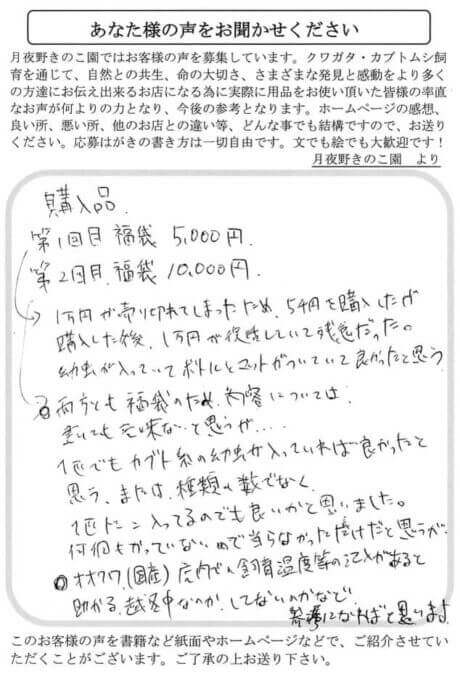 あなた様の声をお聞かせください
月夜野きのこ園ではお客様の声を募集しています。クワガタ・カブトムシ飼
育を通じて、自然との共生、命の大切さ、さまざまな発見と感動をより多く
の方達にお伝え出来るお店になる為に実際に用品をお使い頂いた皆様の率直
なお声が何よりの力となり、今後の参考となります。ホームページの感想、
良い所、悪い所、他のお店との違い等、どんな事でも結構ですので、お送り
ください。応募はがきの書き方は一切自由です。文でも絵でも大歓迎です！
月夜野きのこ園 より
購入品.
第1回目 福袋 5,000円.
第2回目 福袋 10,000円.
1万円が売り切れてしまったため、5千円を購入したが
購入した後、1万円が復活していて残念だった。
幼虫が入っていてボトルとマットがついていて良かったと思う
両方とも福袋のため、内容については
書いても意味ないと思うが....
1匹でもカブト系の幼虫が入っていれば良かったと
思う、または、種類の数でなく、
1匹 入ってるのでも良いかと思いました。
何個もかっていないので当らなかっただけだと思うが
オオクワ(国産)店内での飼育温度等の記入があると
助かる、越冬中なのか、してないのかなど、
参考になればと思います
このお客様の声を書籍など紙面やホームページなどで、ご紹介させてい
ただくことがございます。ご了承の上お送り下さい。